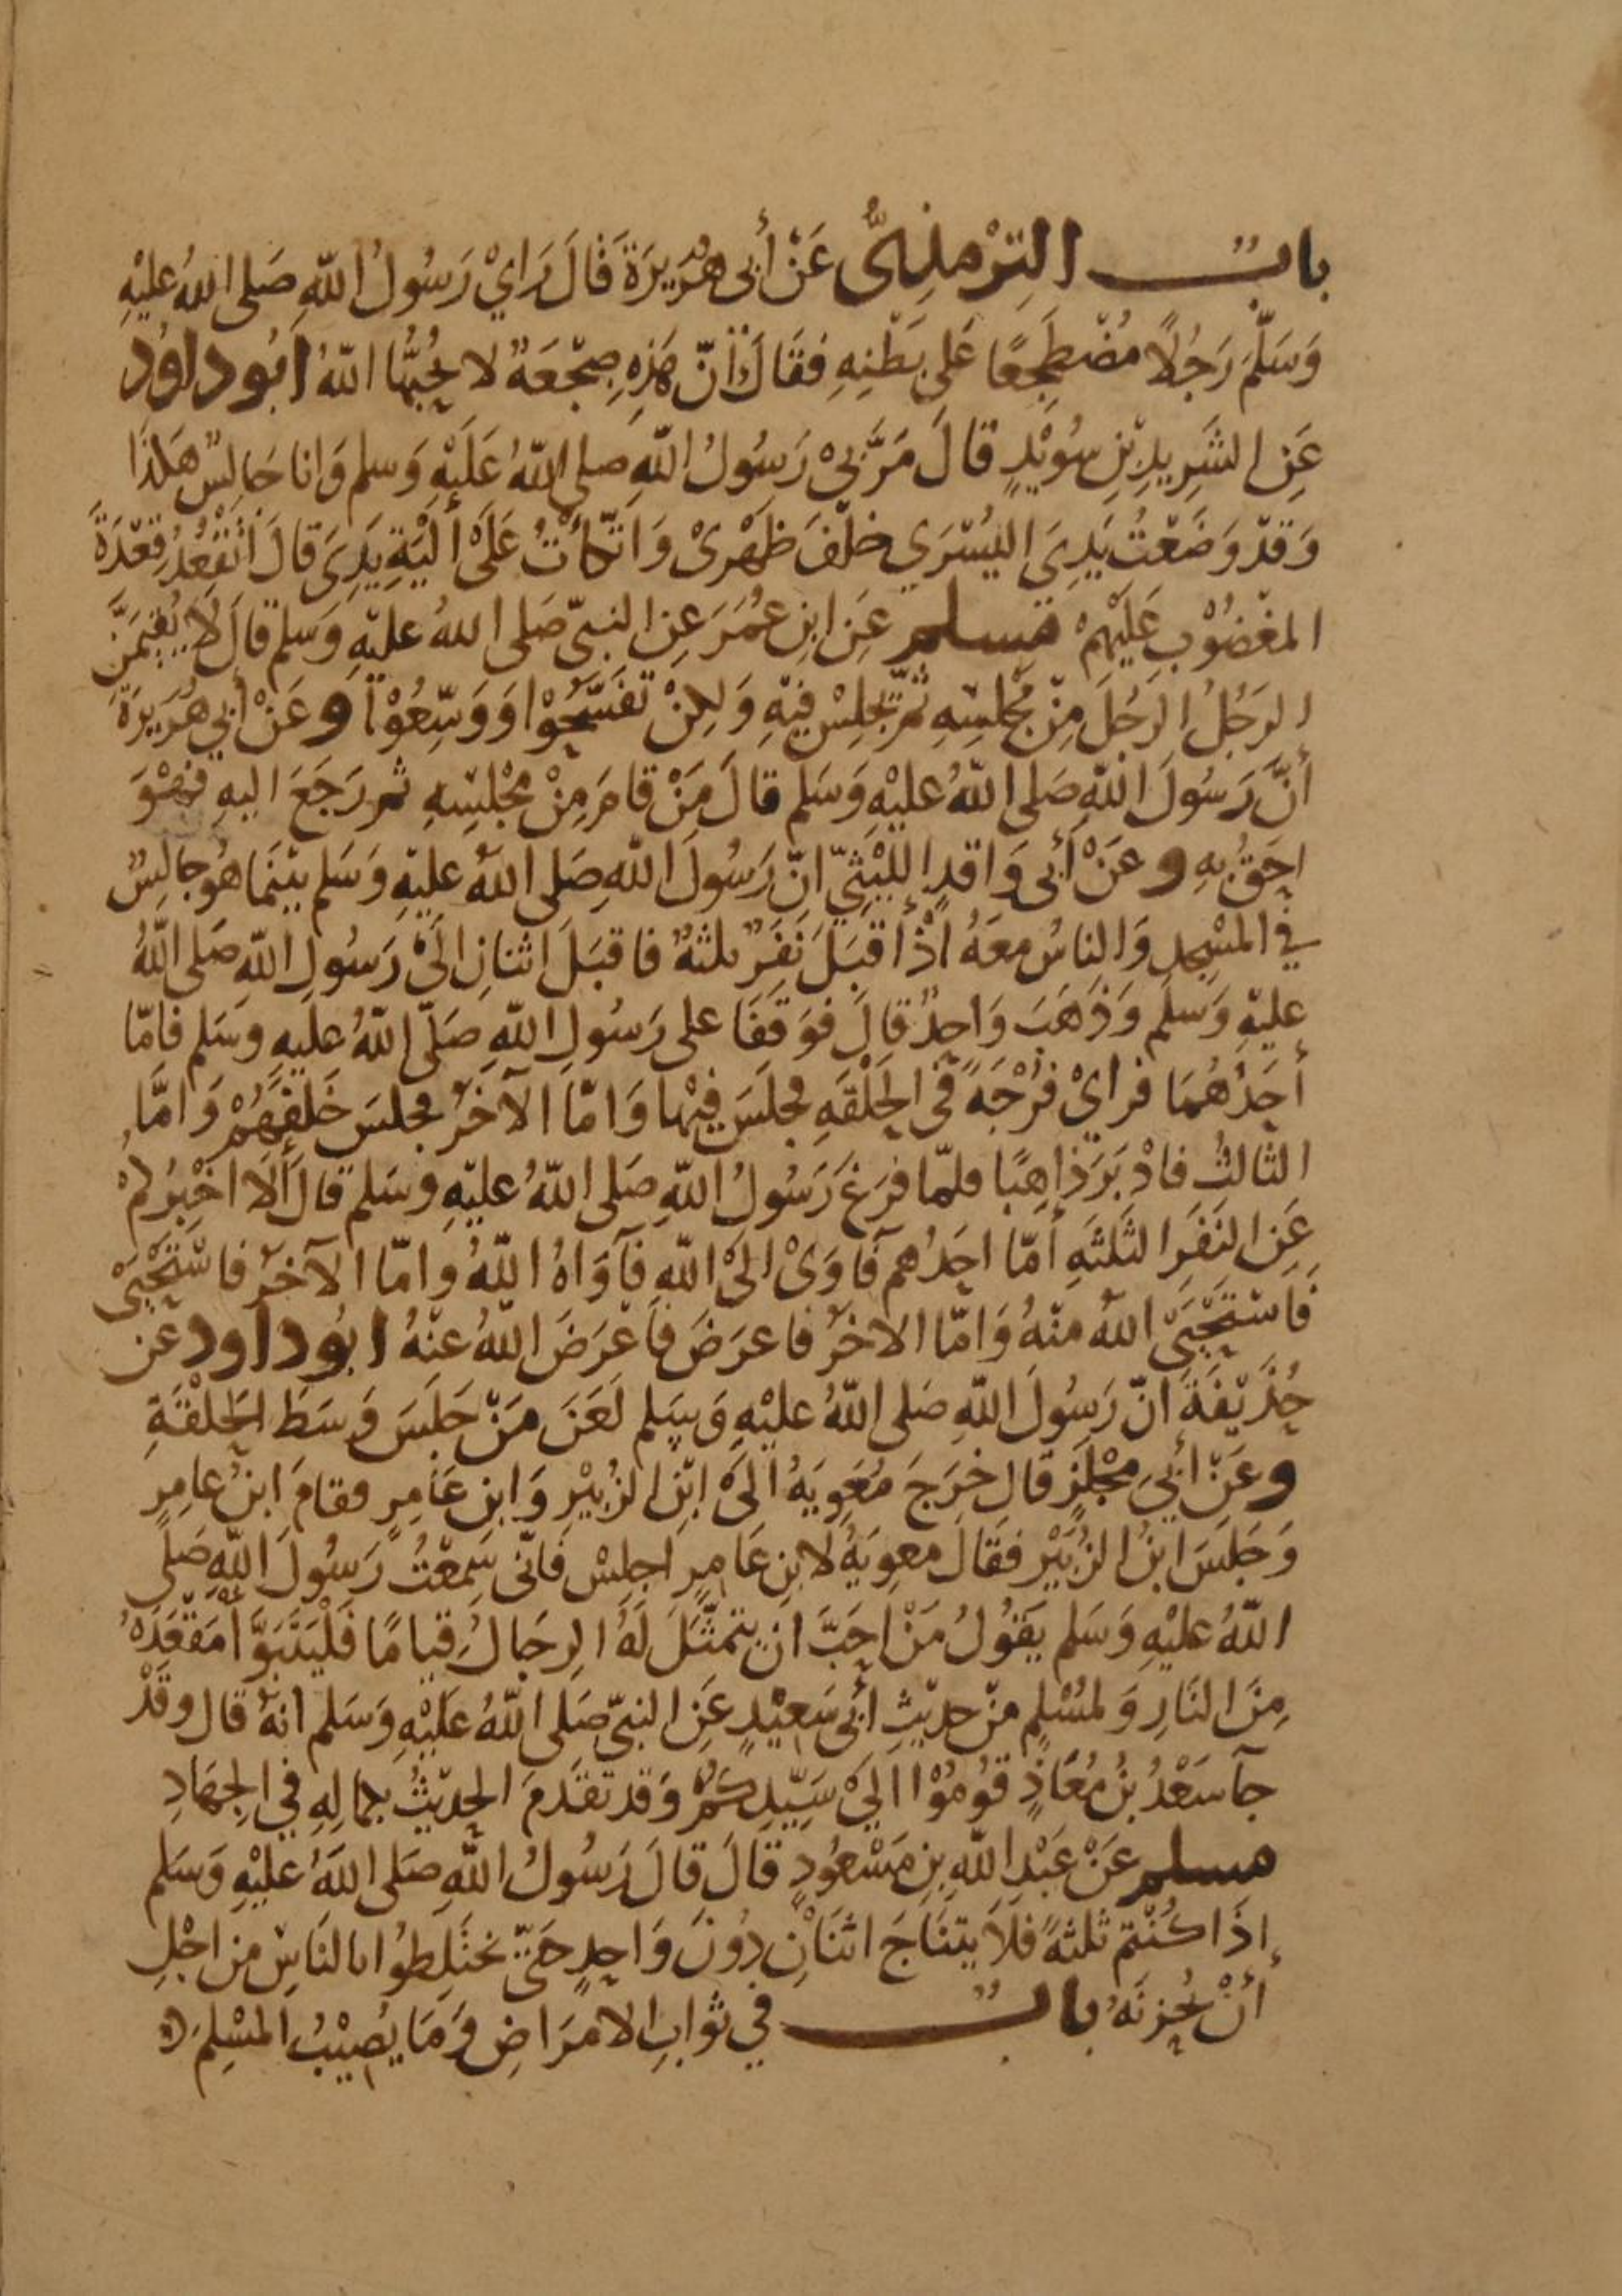 باب الترمذي عَنْ أَبي هُرَيرَةَ قَالَ رَاي رَسُولُ اللّهِ صَلى اللهُ عليْهِ
وَسَلّمَ رَجُلًا مُضْطَجِعًا عَلى بَطْنِهِ فقَالَ انّ هَذِهِ ضِجْعَةٌ لا يُحِبُّهَا اللّهُ ابُو داوُد
عَنِ الشَرِيدِ بْنِ سُوَيْدٍ قالَ مَرَّ بيْ رَسُولُ اللّهِ صلى اللّهُ عَلَيْهِ وَسلم وَانا جَالِسٌ هَكذَا
وَقدْ وَضَعْتُ يَدِيَ اليُسْرَي خلْفَ ظَهْرِىْ وَاتّكأتُ عَلَىْ ألْيَةِ يَدِىَ قالَ اتَقْعُدُ قِعْدَةَ
المغْضُوْبِ عَلَيْهِمْ مسلم عَنِ ابنِ عُمَرَ عنِ النبىّ صَلى اللهُ عليْهِ وَسَلم قالَ لَا يُقيمَنَّ
الرَجُلُ الرَجُلَ مِنْ مجْلسِهِ ثمّ يَجْلِسْ فيْهِ وَلكِنْ تفَسَّحُوْا وَوَسِّعُوْا و عَنْ أبي هُرَيرَةَ
أنَّ رَسُولَ اللّهِ صَلى اللّهُ عليْهِ وَسَلم قالَ مَنْ قامَ مِنْ مجْلسِهِ ثم رَجَعَ اليهِ فهُوَ
احَقُّ بِهِ و عَنْ أبى وَاقدٍ اللّيْثِيّ انّ رَسُولَ اللّهِ صَلى اللهُ عليْهِ وَسَلم بيْنَمَا هُوَ جالسٌ
في المسْجِدِ وَالناسُ معَهُ اذْ أقبَلَ نَفَرٌ ثلثةٌ فاقبَلَ اثنانِ الَىْ رَسُولِ اللّهِ صَلى اللّهُ
عليْهِ وَسَلم وَذَهَبَ وَاحِدٌ قالَ فوَقفَا على رَسُولِ اللّهِ صَلّى اللّهُ عليهِ وسَلم فامّا
أحَدُهُمَا فرايْ فُرْجَةً في الحَلْقَةِ فجلَسَ فيْها وَامّا الآخَرُ فجلسَ خَلفَهُمْ وَامَّا
الثالثُ فادْبَرَ ذاهِبًا فلمّا فرَغ رَسُولُ اللّهِ صَلى اللّهُ عليْهِ وسَلم قالَ ألَا اخْبِرُكمْ
عَنِ النَفَرِ الثَلثَةِ أمّا احَدُهم فآوَىْ الىْ اللّهِ فآوَاهُ اللّهُ وامّا الآخرُ فاسْتَحْيَىْ
فَاسْتَحْيَىْ اللهُ منْهُ وَامّا الاخرُ فاعرَضَ فأَعْرَضَ اللّهُ عنْهُ ابُو داود عن
حُذَيْفَةَ انّ رَسُولَ اللّهِ صَلى اللّهُ عليْهِ وَسَلم لَعَنَ مَنْ جَلَسَ وَسَطَ الحَلْقَةِ
و عَنْ أبيْ مِجْلَزٍ قالَ خرَجَ مُعَوِيَةُ الَىْ ابْنِ الزُبَيْرِ وَابنِ عَامِرٍ فقامَ ابنُ عامِرٍ
وَجَلسَ ابنُ الزُبَيْر فقَالَ معوِيَةُ لابنِ عَامِرٍ اجلِسْ فَانّى سَمعْتُ رَسُولَ اللّهِ صَلى
اللّهُ عليْهِ وَسَلم يقُولُ مَنْ احَبَّ ان يتمثّلَ لَهُ الرجَالُ قيامًا فَلْيَتَبَوَّأْ مَقْعَدَهُ
مِنَ النَارِ وَلمُسْلمٍ منْ حدِيْثِ أبي سَعِيْدٍ عَنِ النبيّ صَلى اللّهُ عَلَيْهِ وَسَلم انهُ قال وقدْ
جآ سَعْدُ بنُ مُعَاذٍ قوُمُوْا الىْ سَيِّدِكمْ وَقد تقَدمَ الحدِيْثُ بكمالِهِ في الجِهَادِ
مسلم عَنْ عَبْدِ اللّهِ بنِ مَسْعُودٍ قالَ قالَ رَسُولُ اللّهِ صَلى اللّهُ عليْهِ وَسَلم
إذَا كُنْتُم ثلثةً فلَا يتنَاجَ اثنَانِ دُونَ وَاحِدٍ حَتّى تختَلِطُوا بالنَاسِ من اجْلِ
أنْ يُحزِنَهُ باب في ثوابِ الامرَاضِ وَمَا يُصِيْبُ المسْلِمَ